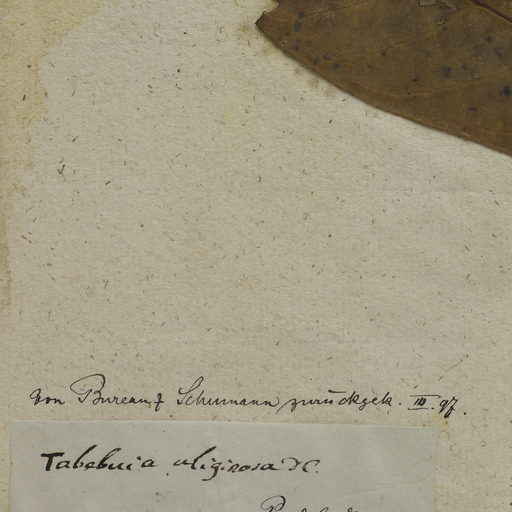 von Bureau & Schumann zurückgek. III. 97.
Tabebuia uliginosa DC.